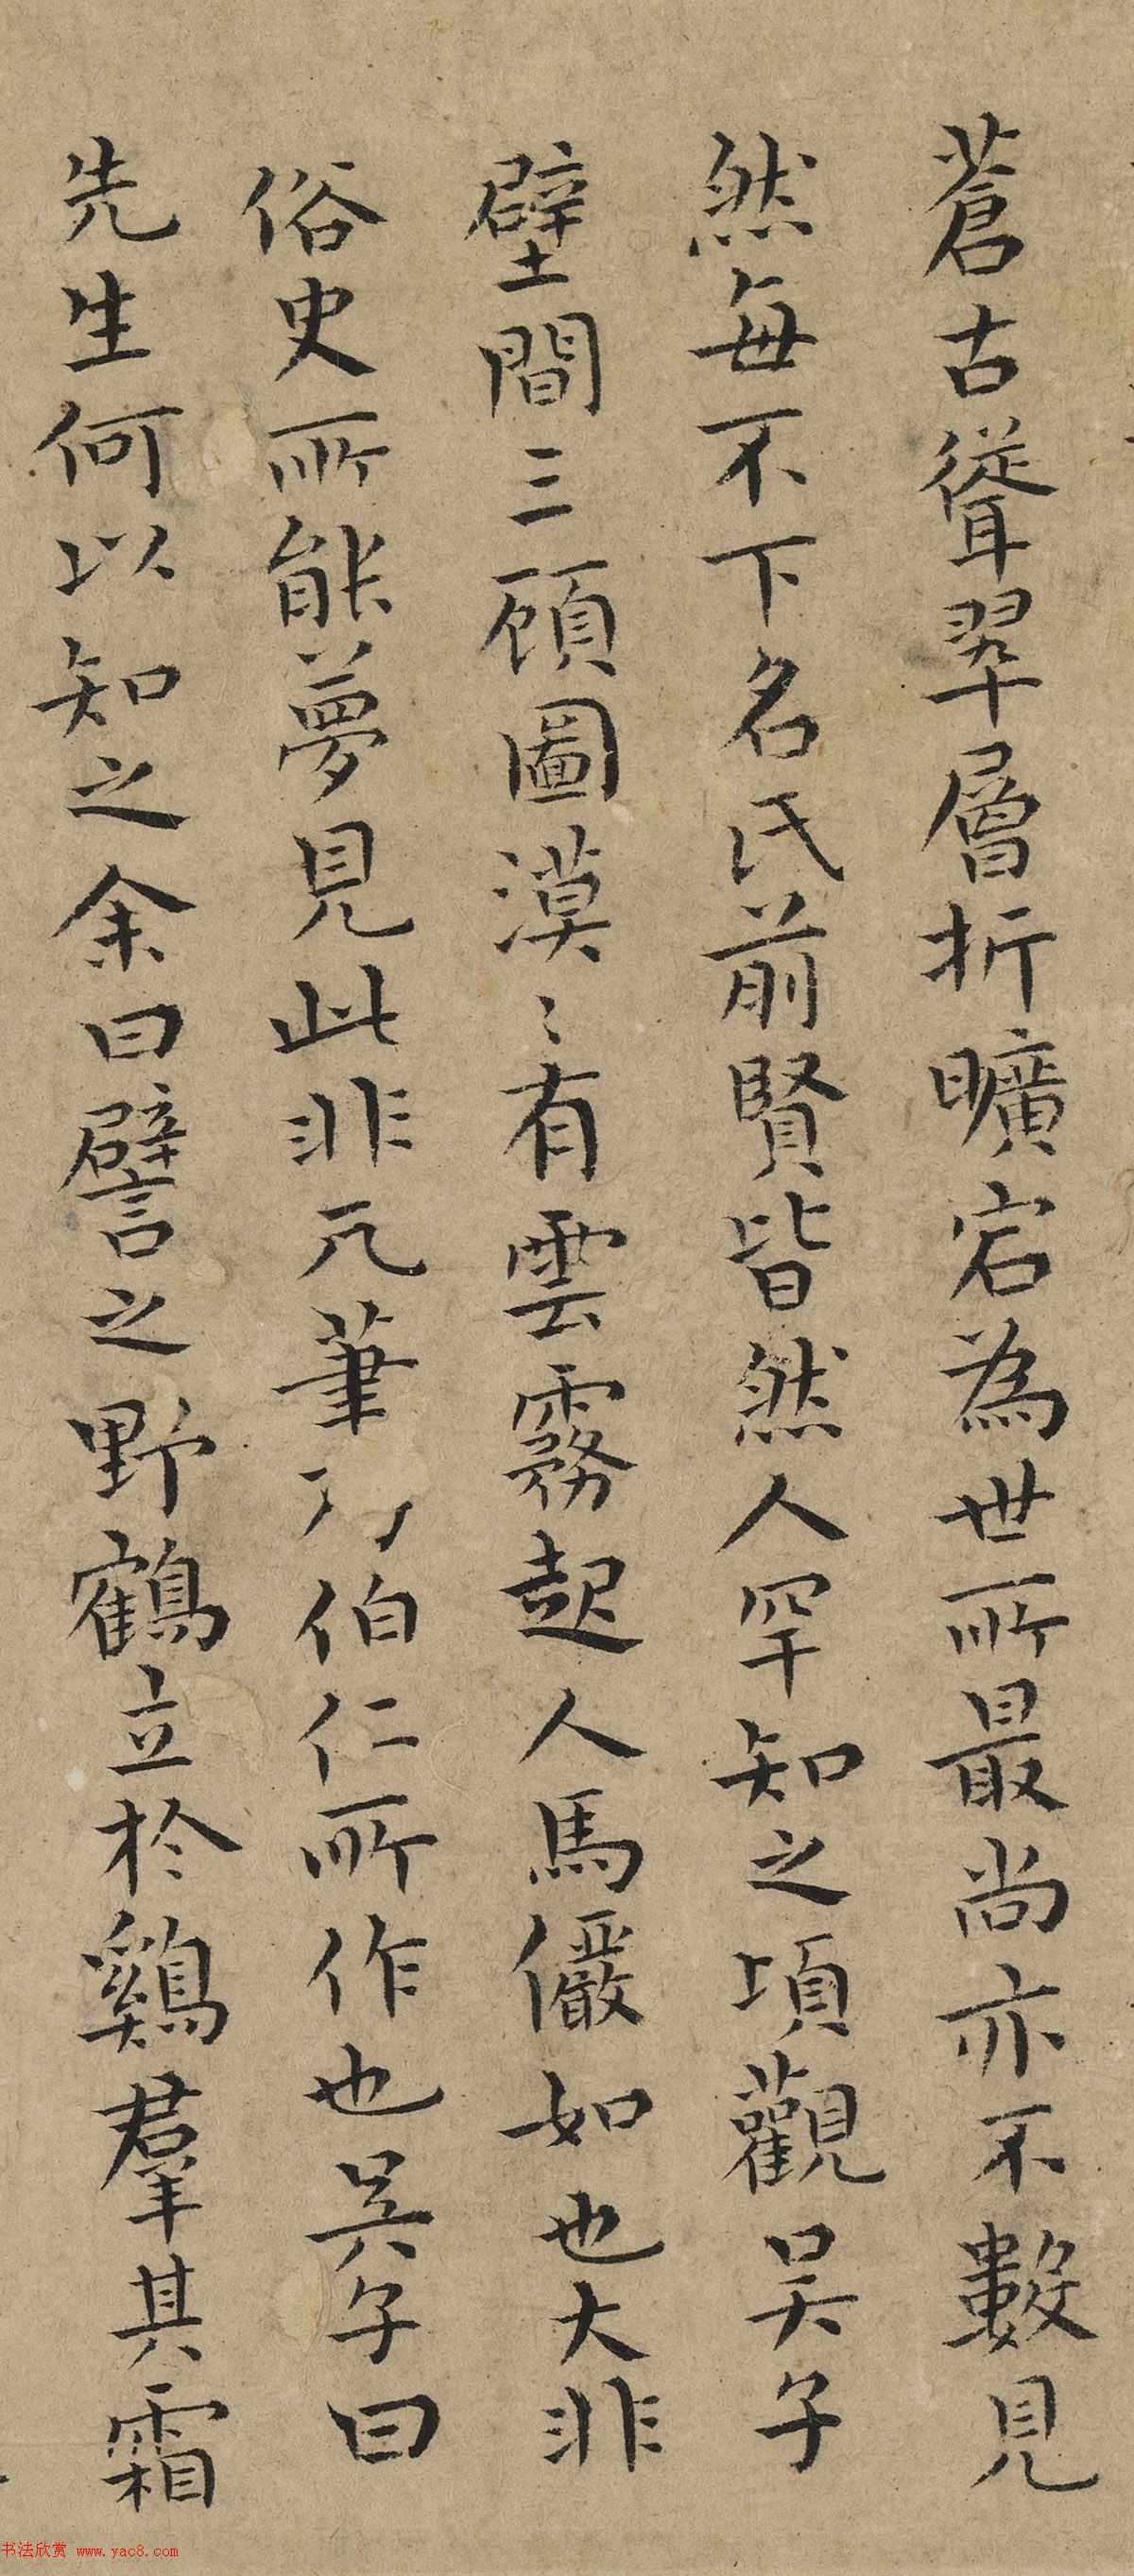 蒼古聳翠層折曠宕為世所最尚亦不數見
然每不下名氏前賢皆然人罕知之頃觀吴子
壁間三顧圖漠〻有雲霧起人馬儼如也大非
俗史所能夢見此非凢筆乃伯仁所作也吴子曰
先生何以知之余曰譬之野鶴立於鷄羣其霜
书法欣赏 www.yac8.com